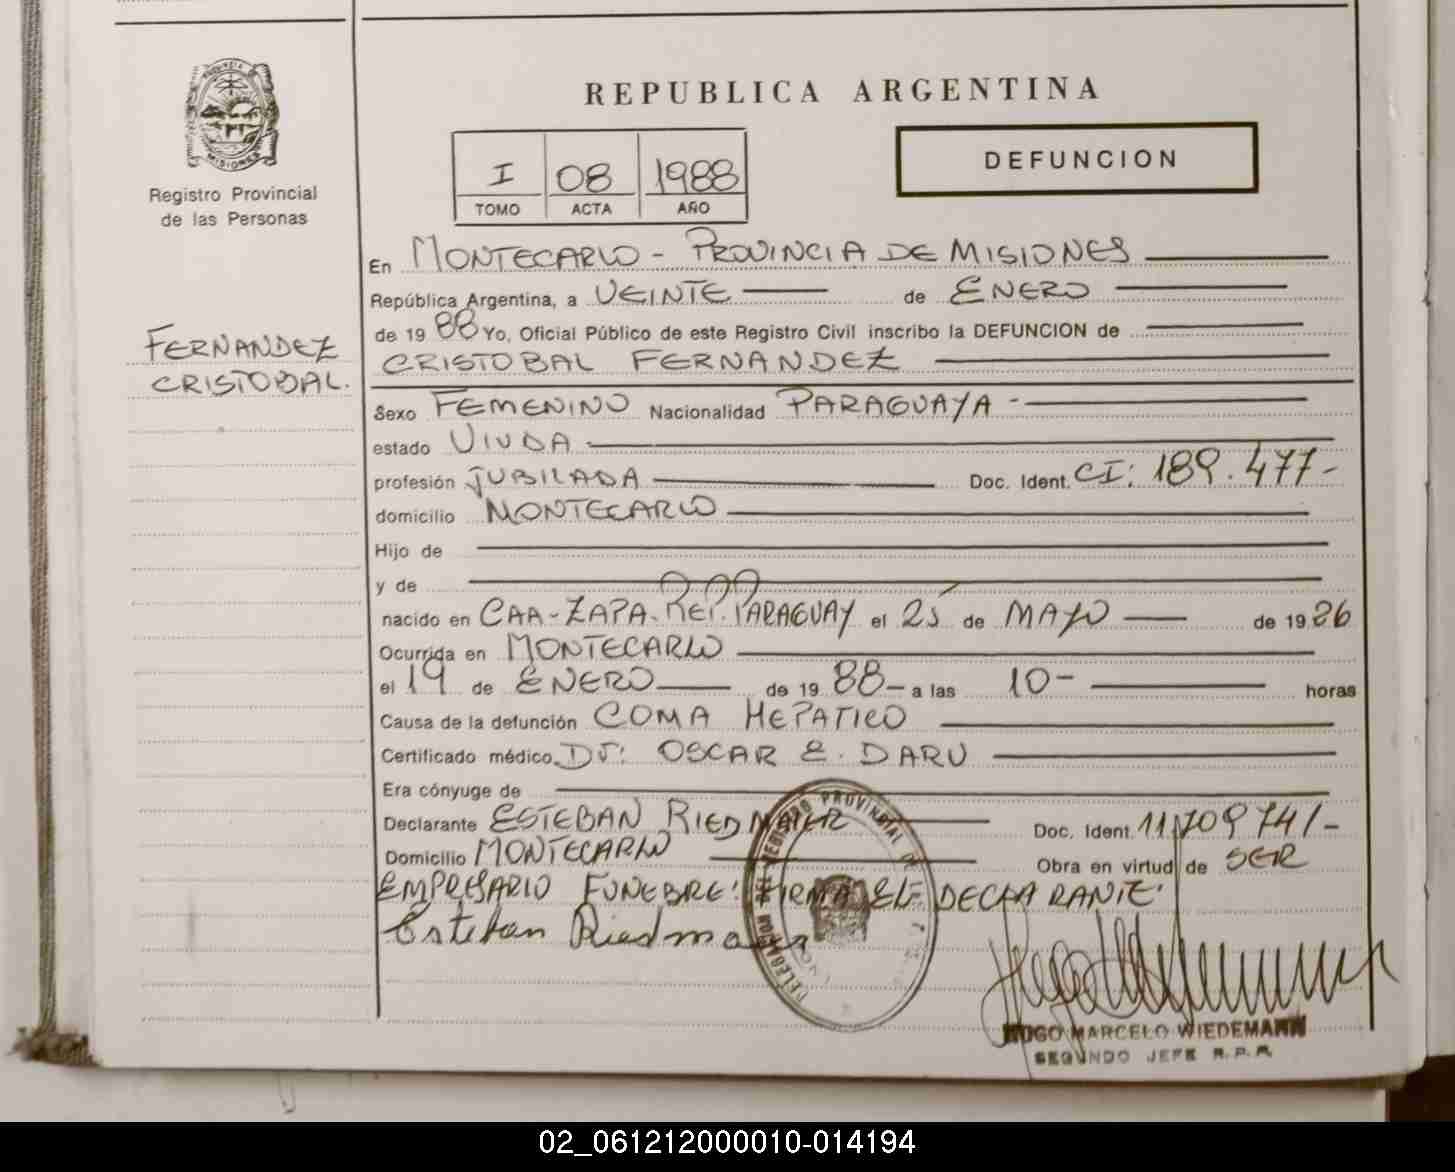 REPUBLICA ARGENTINA
I 08 1988
TOMO ACTA AÑO
DEFUNCION
PROVINCIA DE
MISIONES
Registro Provincial
de las Personas
FERNANDEZ
CRISTOBAL.
En MONTECARLO - PROVINCIA DE MISIONES
República Argentina, a VEINTE de ENERO
de 19 88 Yo, Oficial Público de este Registro Civil inscribo la DEFUNCION de
CRISTOBAL FERNANDEZ
Sexo FEMENINO Nacionalidad PARAGUAYA -
estado VIUDA
profesión JUBILADA Doc. Ident. CI: 189.477-
domicilio MONTECARLO
Hijo de
y de
nacido en CAA-ZAPA-REP. PARAGUAY el 25 de MAYO de 19 26
Ocurrida en MONTECARLO
el 19 de ENERO de 19 88- a las 10- horas
Causa de la defunción COMA HEPATICO
Certificado médico Dr: OSCAR E. DARU
Era cónyuge de
Declarante ESTEBAN RIEDMAIER Doc. Ident. 11.709.741-
Domicilio MONTECARLO Obra en virtud de SER
EMPRESARIO FUNEBRE: FIRMA EL DECLARANTE.
Esteban Riedmaier
DELEGACION DEL REGISTRO PROVINCIAL DE
HUGO MARCELO WIEDEMANN
SEGUNDO JEFE R.P.P.
02_061212000010-014194